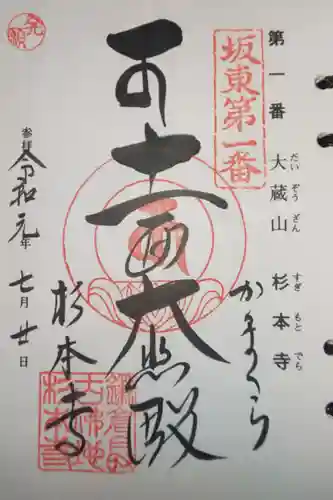 第一番 大蔵山 杉本寺
だい ぞう ざん すぎ もと でら
坂東第一番
かまくら
十一面大悲殿
発願
参拝 令和元年七月廿日
杉本寺